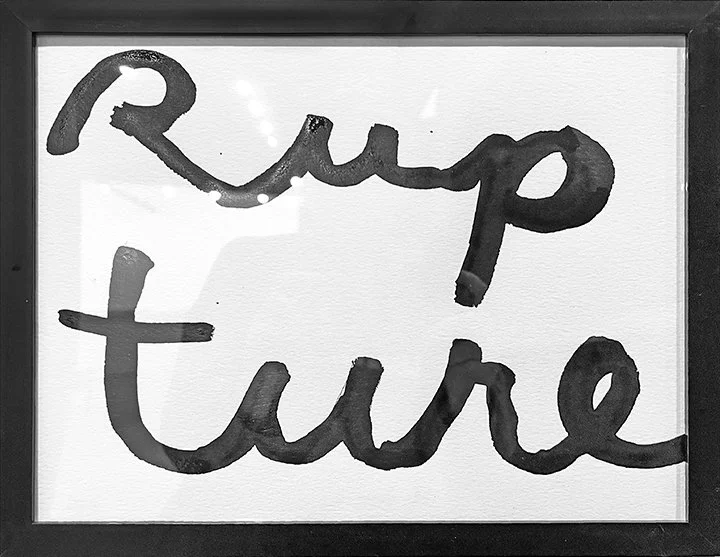 Rup
ture